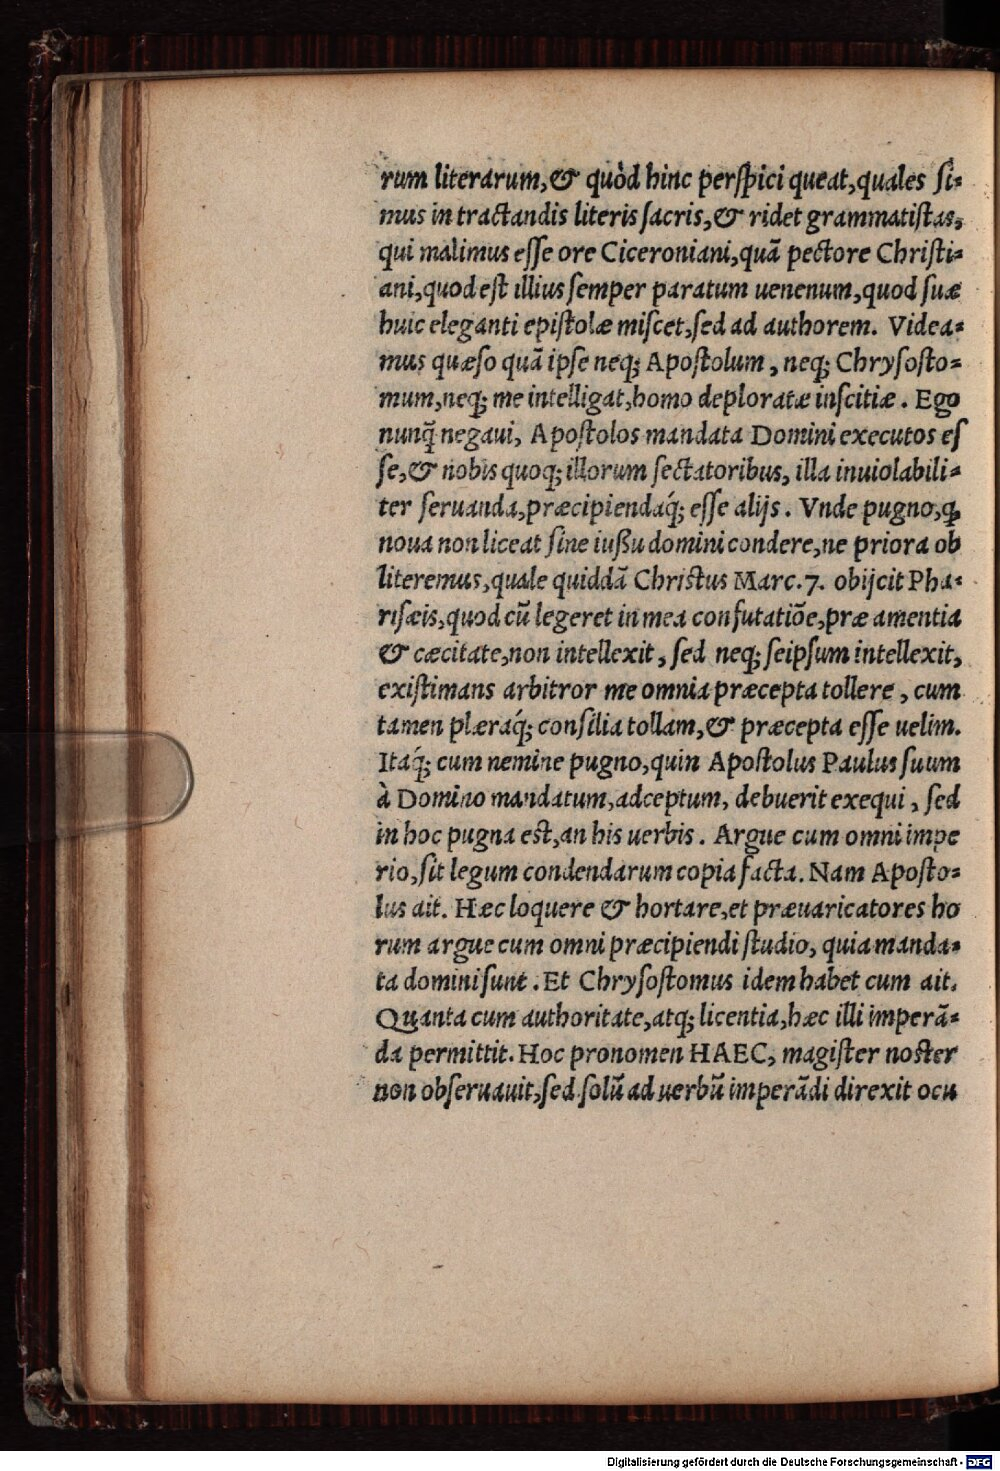 rum literarum,& quòd hinc perſpici queat,quales ſi-
mus in tractandis literis ſacris,& ridet grammatiſtas,
qui malimus eſſe ore Ciceroniani,quã pectore Chriſti-
ani,quod eſt illius ſemper paratum uenenum,quod ſuæ
huic eleganti epiſtolæ miſcet,ſed ad authorem. Videa-
mus quæſo quã ipſe neq; Apoſtolum, neq; Chryſoſto-
mum,neq; me intelligat,homo deploratæ inſcitiæ. Ego
nunq̃ negaui, Apoſtolos mandata Domini executos eſ
ſe,& nobis quoq; illorum ſectatoribus, illa inuiolabili-
ter ſeruanda,præcipiendaq́; eſſe alijs. Vnde pugno,ꝙ
noua non liceat ſine iuſſu domini condere,ne priora ob
literemus,quale quiddã Chriſtus Marc.7. obijcit Pha-
riſæis,quod cũ legeret in mea confutatiõe,præ amentia
& cæcitate,non intellexit, ſed neq; ſeipſum intellexit,
exiſtimans arbitror me omnia præcepta tollere, cum
tamen plæraq́; conſilia tollam,& præcepta eſſe uelim.
Itaq́; cum nemine pugno,quin Apoſtolus Paulus ſuum
à Domino mandatum,adceptum, debuerit exequi, ſed
in hoc pugna eſt,an his uerbis. Argue cum omni impe
rio,ſit legum condendarum copia facta. Nam Apoſto-
lus ait. Hæc loquere & hortare,et præuaricatores ho
rum argue cum omni præcipiendi ſtudio, quia manda-
ta domini ſunt. Et Chryſoſtomus idem habet cum ait.
Quanta cum authoritate,atq; licentia,hæc illi imperã-
da permittit. Hoc pronomen HAEC, magiſter noſter
non obſeruauit,ſed ſolũ ad uerbũ imperãdi direxit ocu
Digitalisierung gefördert durch die Deutsche Forschungsgemeinschaft - DFG